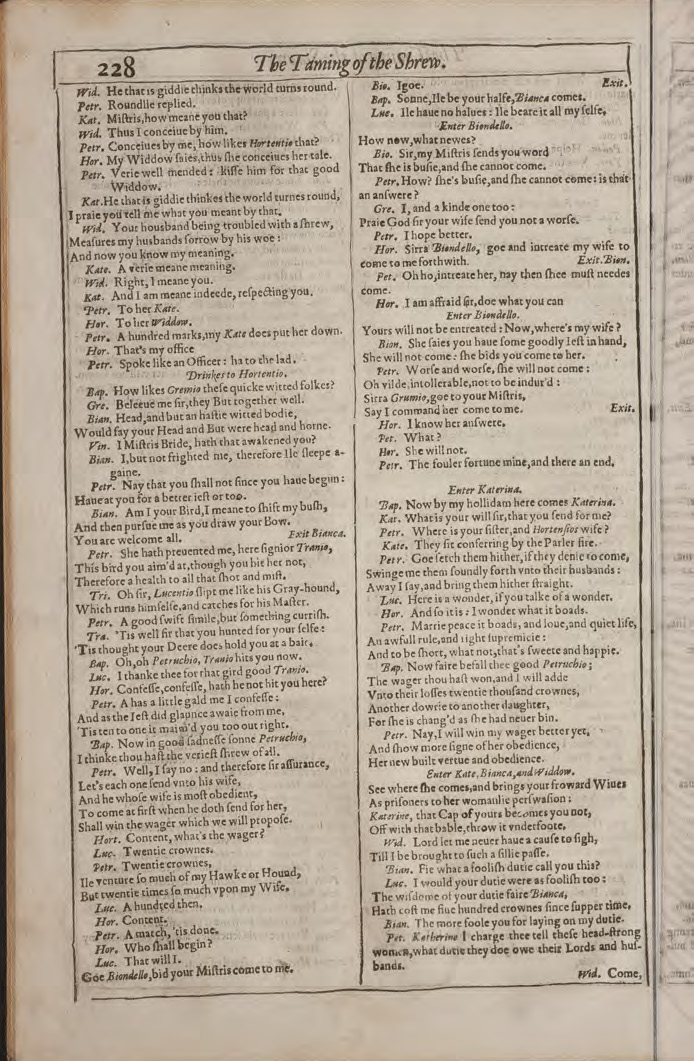 228
The Taming of the Shrew.
Wid. He that is giddie thinks the world turns round.
Petr. Roundlie replied.
Kat. Mistris, how meane you that?
Wid. Thus I conceiue by him.
Petr. Conceiues by me, how likes Hortentio that?
Hor. My Widdow saies, thus she conceiues her tale.
Petr. Verie well mended: kisse him for that good
Widdow.
Kat. He that is giddie thinkes the world turnes round,
I praie you tell me what you meant by that.
Wid. Your housband being troubled with a shrew,
Measures my husbands sorrow by his woe:
And now you know my meaning.
Kate. A verie meane meaning.
Wid. Right, I meane you.
Kat. And I am meane indeede, respecting you.
Petr. To her Kate.
Hor. To her Widdow.
Petr. A hundred marks, my Kate does put her down.
Hor. That's my office.
Petr. Spoke like an Officer: ha to the lad.
Drinkes to Hortentio.
Bap. How likes Gremio these quicke witted folkes?
Gre. Beleeue me sir, they But together well.
Bian. Head, and but an hastie witted bodie,
Would say your Head and But were head and horne.
Vin. I Mistris Bride, hath that awakened you?
Bian. I, but not frighted me, therefore Ile sleepe a-
gaine.
Petr. Nay that you shall not since you haue begun:
Haue at you for a better iest or too.
Bian. Am I your Bird, I meane to shift my bush,
And then pursue me as you draw your Bow.
You are welcome all. Exit Bianca.
Petr. She hath preuented me, here signior Tranio,
This bird you aim'd at, though you hit her not,
Therefore a health to all that shot and mist.
Tri. Oh sir, Lucentio slipt me like his Gray-hound,
Which runs himselfe, and catches for his Master.
Petr. A good swift simile, but something currish.
Tra. 'Tis well sir that you hunted for your selfe:
'Tis thought your Deere does hold you at a baie.
Bap. Oh, oh Petruchio, Tranio hits you now.
Luc. I thanke thee for that gird good Tranio.
Hor. Confesse, confesse, hath he not hit you here?
Petr. A has a little gald me I confesse:
And as the Iest did glaunce awaie from me,
'Tis ten to one it maim'd you too out right.
Bap. Now in good sadnesse sonne Petruchio,
I thinke thou hast the veriest shrew of all.
Petr. Well, I say no: and therefore sir assurance,
Let's each one send vnto his wife,
And he whose wife is most obedient,
To come at first when he doth send for her,
Shall win the wager which we will propose.
Hort. Content, what's the wager?
Luc. Twentie crownes.
Petr. Twentie crownes,
Ile venture so much of my Hawke or Hound,
But twentie times so much vpon my Wife.
Luc. A hundred then.
Hor. Content.
Petr. A match, 'tis done.
Hor. Who shall begin?
Luc. That will I.
Goe Biondello, bid your Mistris come to me.
Bio. Igoe. Exit.
Bap. Sonne, Ile be your halfe, Bianca comes.
Luc. Ile haue no halues: Ile beare it all my selfe.
Enter Biondello.
How now, what newes?
Bio. Sir, my Mistris sends you word
That she is busie, and she cannot come.
Petr. How? she's busie, and she cannot come: is that
an answere?
Gre. I, and a kinde one too:
Praie God sir your wife send you not a worse.
Petr. I hope better.
Hor. Sirra Biondello, goe and intreate my wife to
come to me forthwith. Exit. Bion.
Pet. Oh ho, intreate her, nay then shee must needes
come.
Hor. I am affraid sir, doe what you can
Enter Biondello.
Yours will not be entreated: Now, where's my wife?
Bion. She saies you haue some goodly Iest in hand,
She will not come: she bids you come to her.
Petr. Worse and worse, she will not come:
Oh vilde, intollerable, not to be indur'd:
Sirra Grumio, goe to your Mistris,
Say I command her come to me. Exit.
Hor. I know her answere.
Pet. What?
Hor. She will not.
Petr. The fouler fortune mine, and there an end.
Enter Katerina.
Bap. Now by my hollidam here comes Katerina.
Kat. What is your will sir, that you send for me?
Petr. Where is your sister, and Hortensios wife?
Kate. They sit conferring by the Parler fire.
Petr. Goe fetch them hither, if they denie to come,
Swinge me them soundly forth vnto their husbands:
Away I say, and bring them hither straight.
Luc. Here is a wonder, if you talke of a wonder.
Hor. And so it is: I wonder what it boads.
Petr. Marrie peace it boads, and loue, and quiet life,
An awfull rule, and right supremicie:
And to be short, what not, that's sweete and happie.
Bap. Now faire befall thee good Petruchio;
The wager thou hast won, and I will adde
Vnto their losses twentie thousand crownes,
Another dowrie to another daughter,
For she is chang'd as she had neuer bin.
Petr. Nay, I will win my wager better yet,
And show more signe of her obedience,
Her new built vertue and obedience.
Enter Kate, Bianca, and Widdow.
See where she comes, and brings your froward Wiues
As prisoners to her womanlie perswasion:
Katerine, that Cap of yours becomes you not,
Off with that bable, throw it vnderfoote.
Wid. Lord let me neuer haue a cause to sigh,
Till I be brought to such a sillie passe.
Bian. Fie what a foolish dutie call you this?
Luc. I would your dutie were as foolish too:
The wisdome of your dutie faire Bianca,
Hath cost me fiue hundred crownes since supper time.
Bian. The more foole you for laying on my dutie.
Pet. Katherine I charge thee tell these head-strong
women, what dutie they doe owe their Lords and hus-
bands.
Wid. Come,